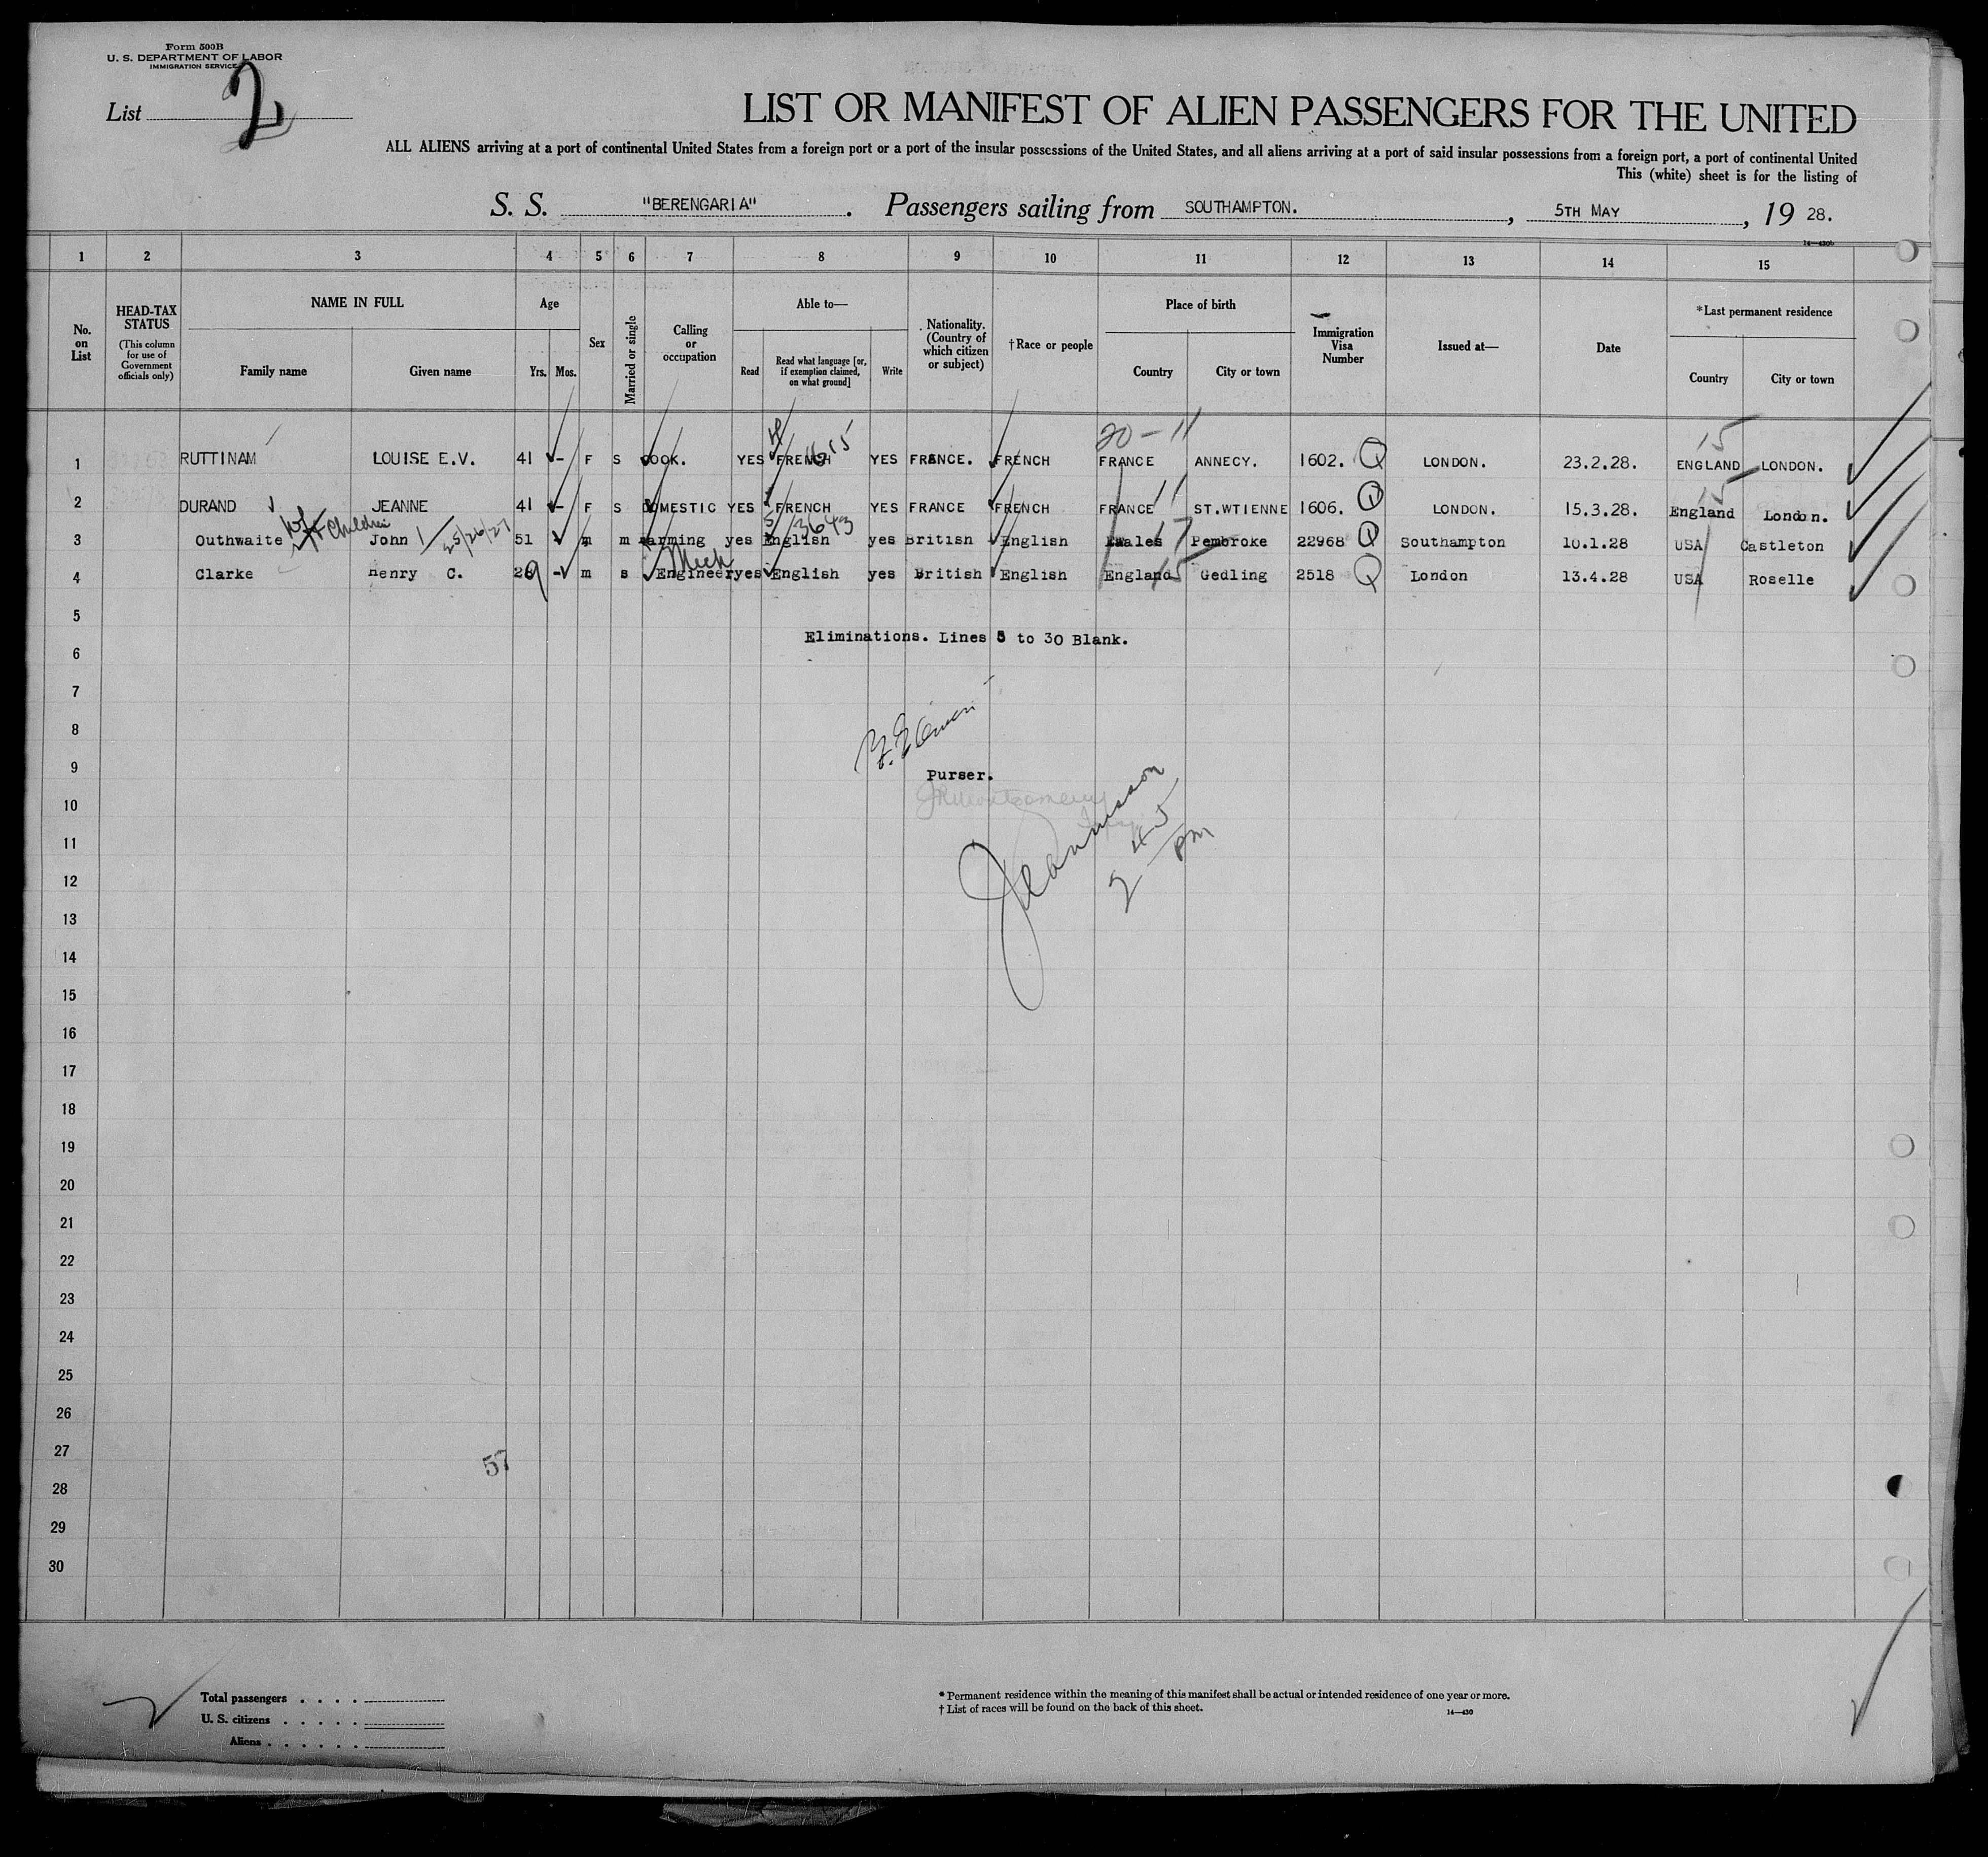 Form 500B
U. S. DEPARTMENT OF LABOR
IMMIGRATION SERVICE
List 2
LIST OR MANIFEST OF ALIEN PASSENGERS FOR THE UNITED
ALL ALIENS arriving at a port of continental United States from a foreign port or a port of the insular possessions of the United States, and all aliens arriving at a port of said insular possessions from a foreign port, a port of continental United
This (white) sheet is for the listing of
S. S. "BERENGARIA". Passengers sailing from SOUTHAMPTON., 5TH MAY, 19 28.
14—430b
1 2 3 4 5 6 7 8 9 10 11 12 13 14 15
No. on List
HEAD-TAX STATUS (This column for use of Government officials only)
NAME IN FULL
Family name Given name
Age
Yrs. Mos.
Sex
Married or single
Calling or occupation
Able to—
Read
Read what language [or, if exemption claimed, on what ground]
Write
Nationality. (Country of which citizen or subject)
†Race or people
Place of birth
Country City or town
Immigration Visa Number
Issued at—
Date
*Last permanent residence
Country City or town
20-11 15
1 RUTTINAM LOUISE E.V. 41 - F S COOK. YES FRENCH YES FRANCE. FRENCH FRANCE ANNECY. 1602. Q LONDON. 23.2.28. ENGLAND LONDON.
11 15
2 DURAND JEANNE 41 - F S DOMESTIC YES FRENCH YES FRANCE FRENCH FRANCE ST.WTIENNE 1606. Q LONDON. 15.3.28. England London.
wf + Children 25/26/27 3643 17
3 Outhwaite John 51 m m Farming yes English yes British English Wales Pembroke 22968 Q Southampton 10.1.28 USA Castleton
Mech 15
4 Clarke Henry C. 29 - m s Engineer yes English yes British English England Gedling 2518 Q London 13.4.28 USA Roselle
5
Eliminations. Lines 5 to 30 Blank.
6
7
8
9
Purser.
10
11
2 45 pm
12
13
14
15
16
17
18
19
20
21
22
23
24
25
26
27
57
28
29
30
Total passengers . . . .
U. S. citizens . . . . .
Aliens . . . . . .
* Permanent residence within the meaning of this manifest shall be actual or intended residence of one year or more.
† List of races will be found on the back of this sheet.
14—430